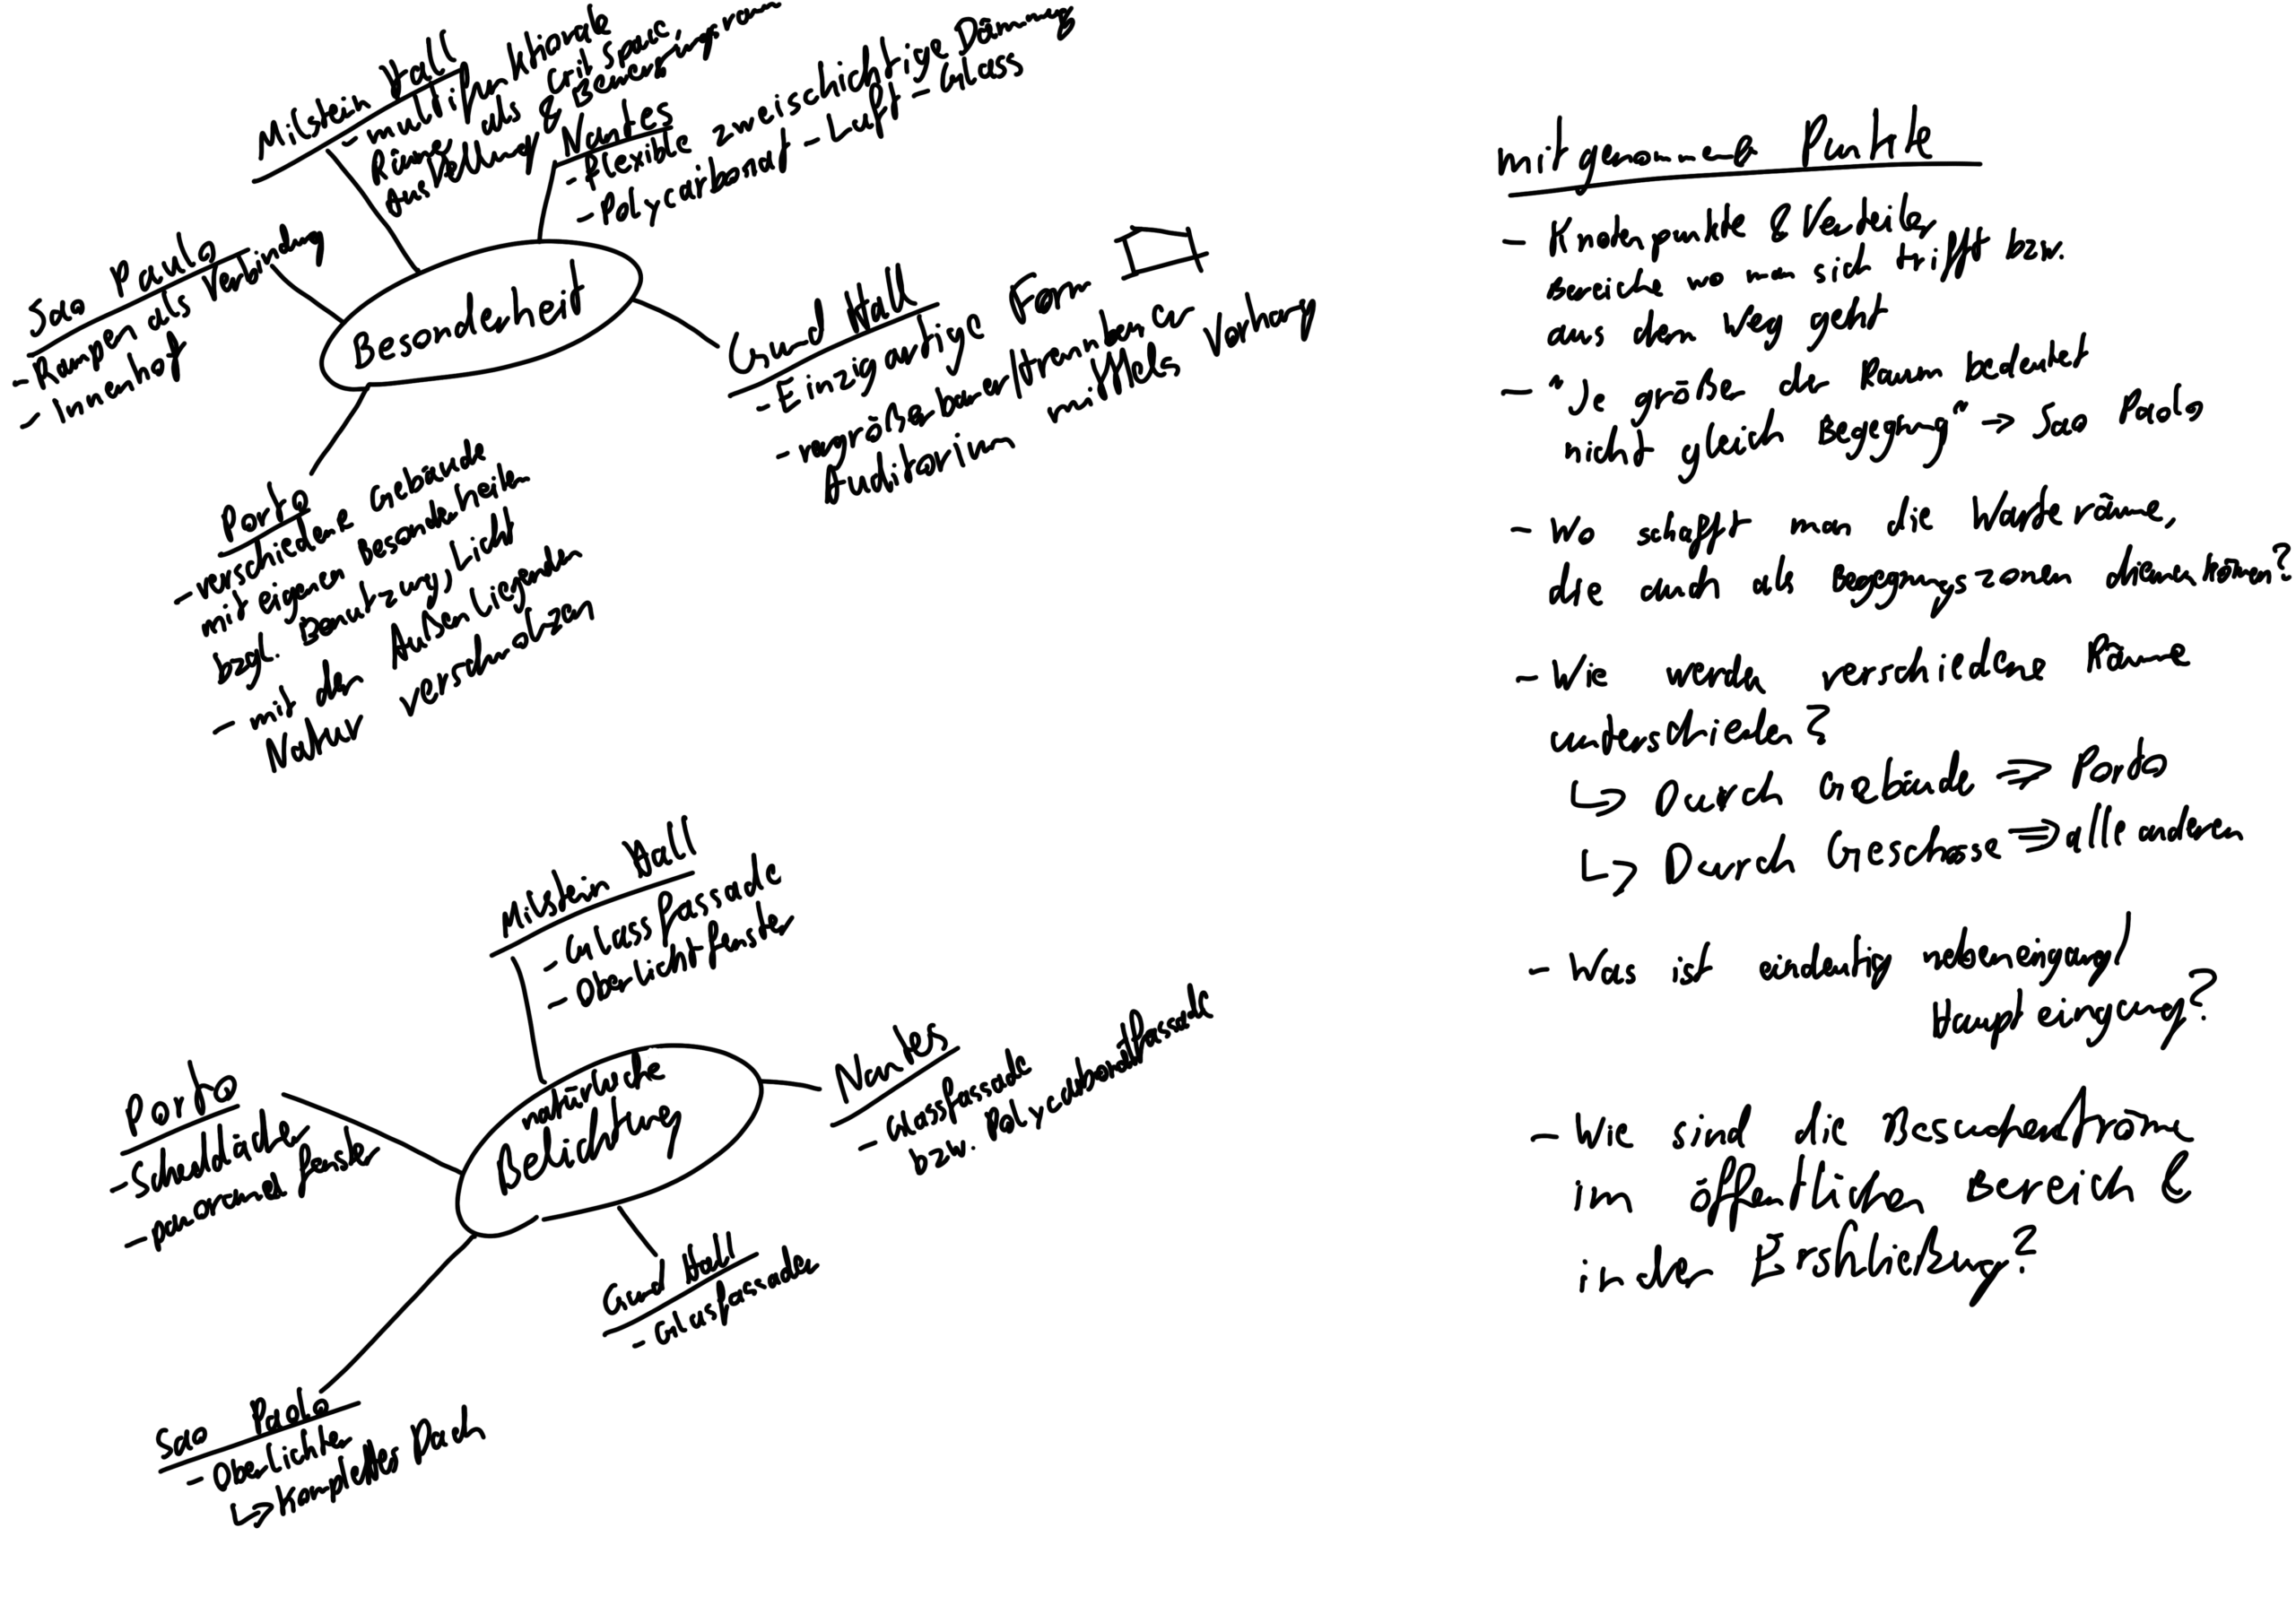 Milstein Hall
- multifunktionale
Räume als Crit Space,
Ausstellung & Bemerkungsraum
Nantes
- Flexible zweischichtige Dämmung
- Polycarbonat - Luft - Glass
Sao Paulo
- Rampen als Verbindung
- Innenhof
Besonderheit
Gund Hall
- Einzigartige Form
- vergrößerbarer/trennbarer
Auditorium mittels Vorhang
Porto
- verschiedene Gebäude
mit eigenen Besonderheiten
bzgl. Benutzung, Licht
- mit der Außenliegenden
Natur verschmolzen
Milstein Hall
- Glassfassade
- Oberlichtfenster
Nantes
- Glassfassade
bzw. Polycarbonatfassade
natürliche
Belichtung
Porto
- Sheddächer
- panorama fenster
Gund Hall
- Glasfassaden
Sao Paolo
- Oberlichter
↳ komplettes Dach
mitgenommene Punkte
- Knotenpunkte & Verteiler
Bereiche wo man sich trifft bzw.
aus dem Weg geht
- "Je größer der Raum bedeutet
nicht gleich Begegnung" → Sao Paolo
- Wo schafft man die Warteräume,
die auch als Begegnungszonen dienen können?
- Wie werden verschiedene Räume
unterschieden?
↳ Durch Gebäude ⇒ Porto
↳ Durch Geschosse ⇒ alle anderen
- Was ist eindeutig nebeneingang/
Haupteingang?
- Wie sind die Besucherströme
im öffentlichen Bereich &
in der Erschließung?